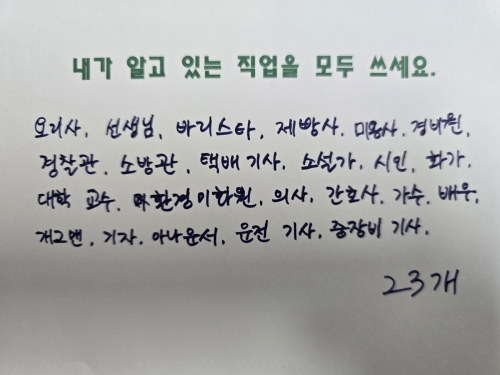 내가 알고 있는 직업을 모두 쓰세요.
요리사, 선생님, 바리스타, 제빵사, 미용사, 경비원,
경찰관, 소방관, 택배 기사, 소설가, 시인, 화가,
대학 교수, 환경미화원, 의사, 간호사, 가수, 배우,
개그맨, 기자, 아나운서, 운전 기사, 중장비 기사.
23개